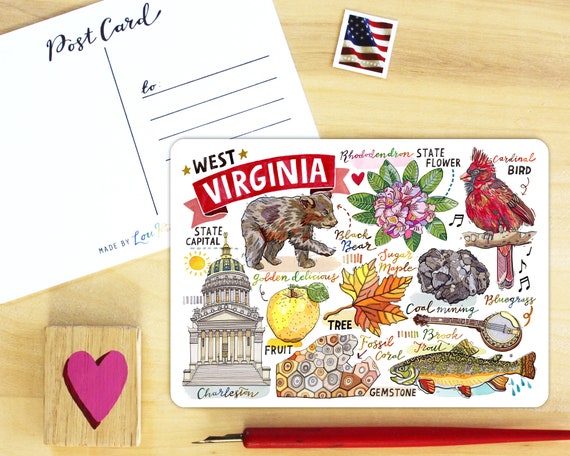 Post Card
to:
MADE BY Lou
WEST
VIRGINIA
Rhododendron
STATE
FLOWER
Cardinal
BIRD
STATE
CAPITAL
Black
Bear
Golden delicious
Sugar
Maple
Coal mining
Bluegrass
TREE
FRUIT
Fossil
Coral
Brook
Trout
Charleston
GEMSTONE